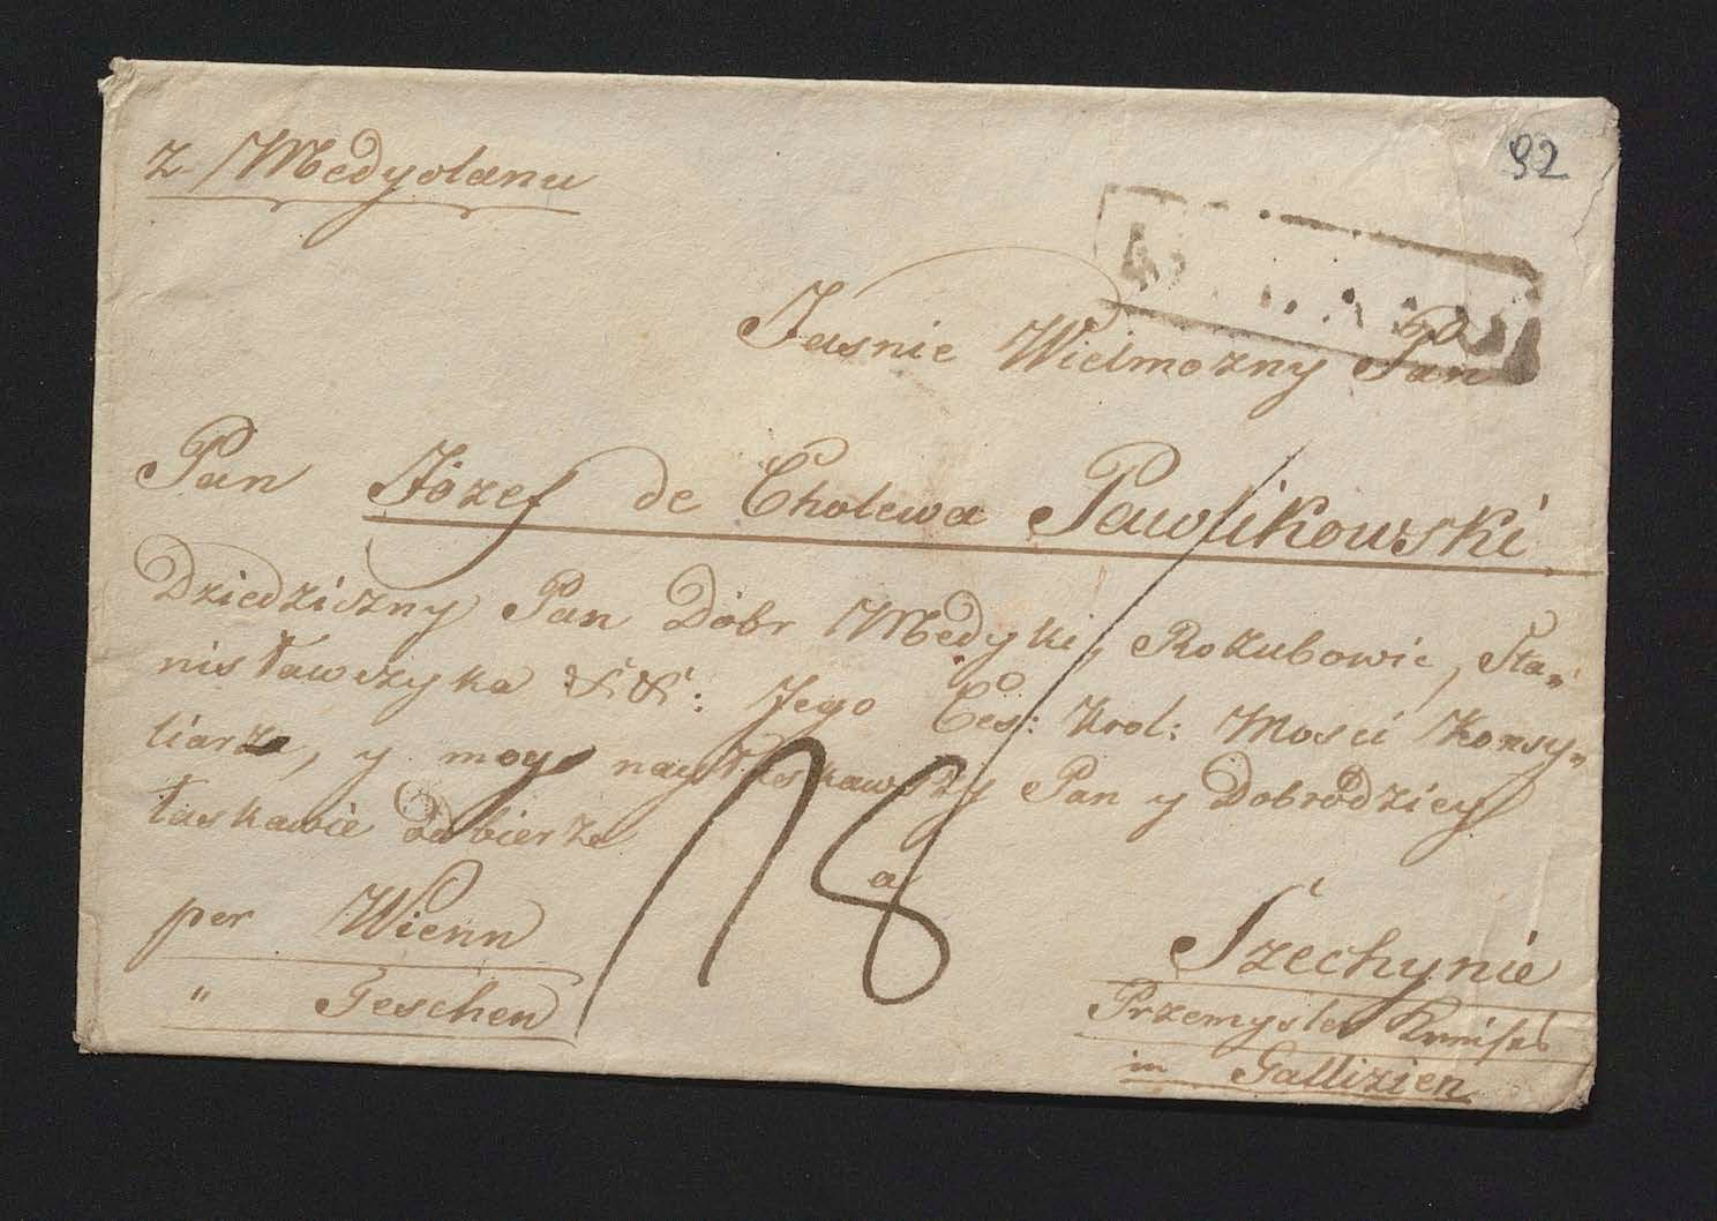 z Medyolanu
92
Jasnie Wielmozny Pan
Pan Józef de Cholewa Pawlikowski
Dziedziczny Pan Dóbr Medyki, Rokubowic, Sta„
nisławczyka &c &c: Jego Ces: Krol: Mosci Konsy„
liarz, y moy nayłaskawszy Pan y Dobrodziey
łaskawie odbierze
18
a
per Wienn
" Teschen
Szechynie
Przemysler Kreises
in Gallizien